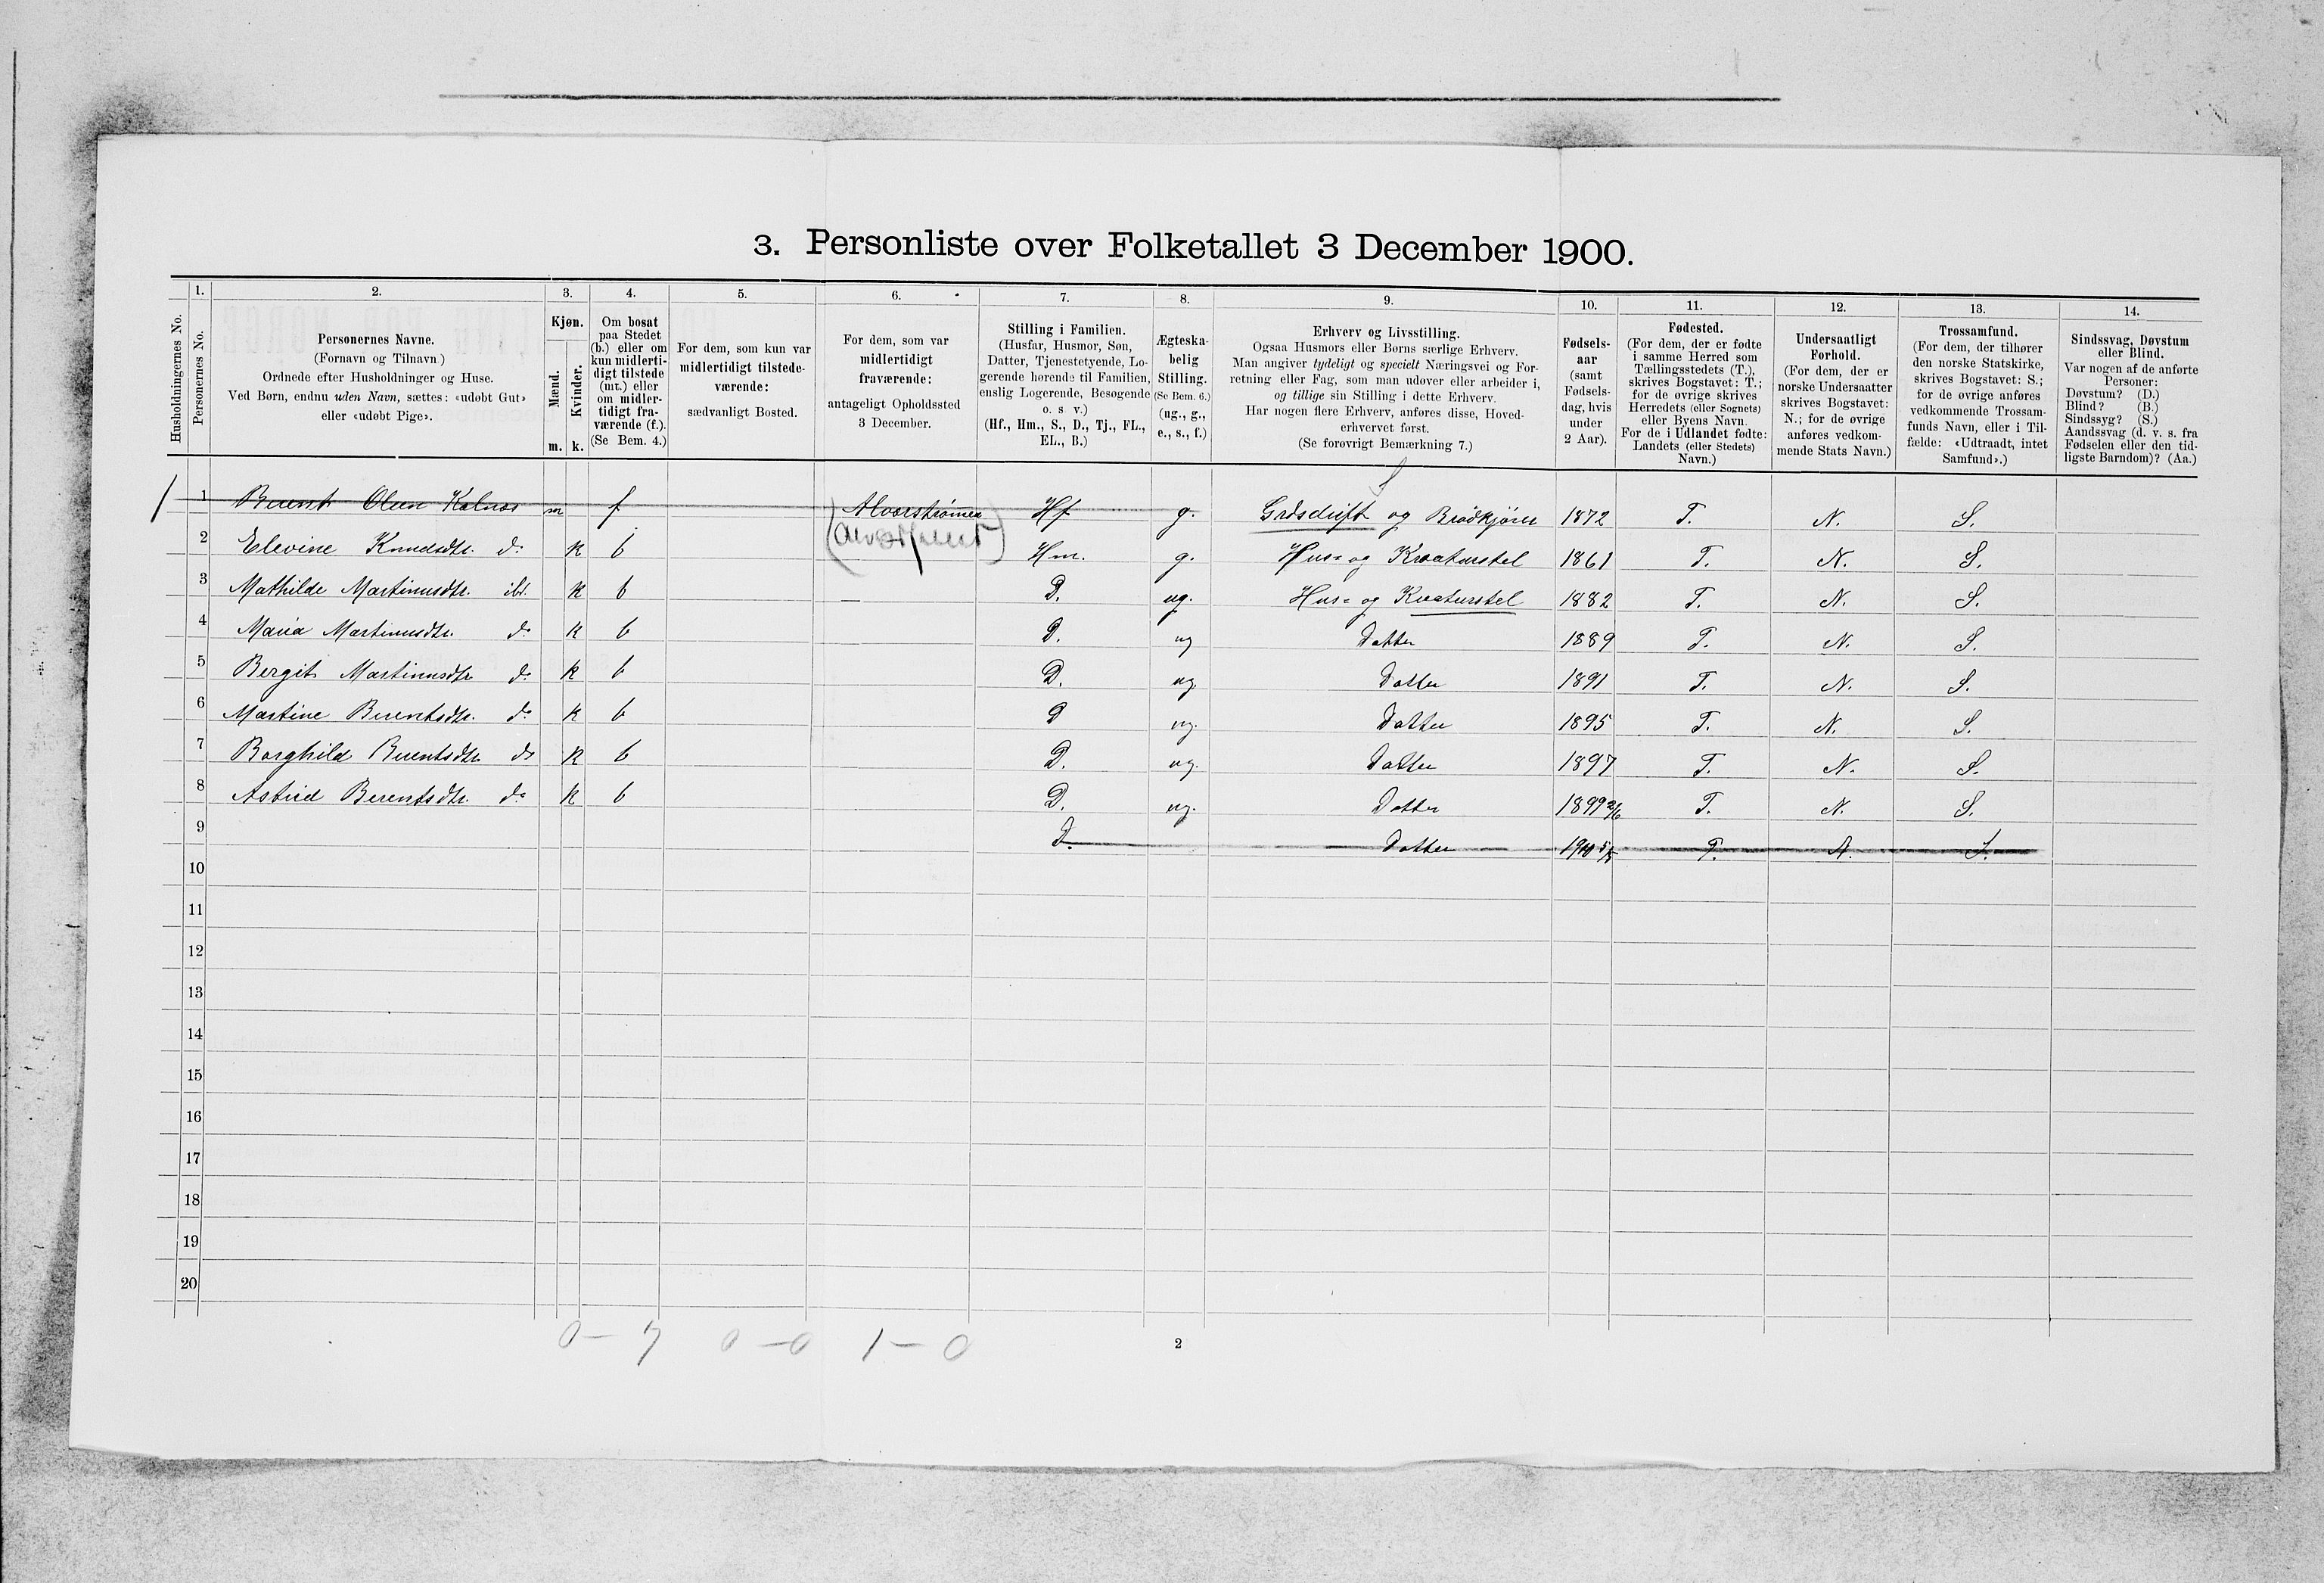 3. Personliste over Folketallet 3 December 1900.
Husholdningernes No.
1. Personernes No.
2. Personernes Navne.
(Fornavn og Tilnavn.)
Ordnede efter Husholdninger og Huse.
Ved Børn, endnu uden Navn, sættes: «udøbt Gut»
eller «udøbt Pige».
3. Kjøn.
Mænd. m.
Kvinder. k.
4. Om bosat
paa Stedet
(b.) eller om
kun midlerti-
digt tilstede
(mt.) eller
om midler-
tidigt fra-
værende (f.).
(Se Bem. 4.)
5. For dem, som kun var
midlertidigt tilstede-
værende:
sædvanligt Bosted.
6. For dem, som var
midlertidigt
fraværende:
antageligt Opholdssted
3 December.
7. Stilling i Familien.
(Husfar, Husmor, Søn,
Datter, Tjenestetyende, Lo-
gerende hørende til Familien,
enslig Logerende, Besøgende
o. s v.)
(Hf., Hm., S., D., Tj., FL.,
EL., B.)
8. Ægteska-
belig
Stilling.
(Se Bem. 6.)
(ug., g.,
e., s., f.)
9. Erhverv og Livsstilling.
Ogsaa Husmors eller Børns særlige Erhverv.
Man angiver tydeligt og specielt Næringsvei og For-
retning eller Fag, som man udøver eller arbeider i,
og tillige sin Stilling i dette Erhverv.
Har nogen flere Erhverv, anføres disse, Hoved-
erhvervet først.
(Se forøvrigt Bemærkning 7.)
10. Fødsels-
aar
(samt
Fødsels-
dag, hvis
under
2 Aar).
11. Fødested.
(For dem, der er fødte
i samme Herred som
Tællingsstedets (T.),
skrives Bogstavet: T.;
for de øvrige skrives
Herredets (eller Sognets)
eller Byens Navn.
For de i Udlandet fødte:
Landets (eller Stedets)
Navn.)
12. Undersaatligt
Forhold.
(For dem, der er
norske Undersaatter
skrives Bogstavet:
N.; for de øvrige
anføres vedkom-
mende Stats Navn.)
13. Trossamfund.
(For dem, der tilhører
den norske Statskirke,
skrives Bogstavet: S.;
for de øvrige anføres
vedkommende Trossam-
funds Navn, eller i Til-
fælde: «Udtraadt, intet
Samfund».)
14. Sindssvag, Døvstum
eller Blind.
Var nogen af de anførte
Personer:
Døvstum? (D.)
Blind? (B.)
Sindssyg? (S.)
Aandssvag (d. v. s. fra
Fødselen eller den tid-
ligste Barndom)? (Aa.)
1 1 Berent Olsen Kolnes m f Alverstrømmen Hf g. Grdsdrift og Brødkjører 1872 T. N. S.
2 Elevine Knudsdtr. do k b Hm. g. Hus- og Kreaturstel 1861 T. N. S.
3 Mathilde Martinusdtr. ibd. k b — D. ug. Hus- og Kreaturstel 1882 T. N. S.
4 Maria Martinusdtr. do k b D. ug Datter 1889 T. N. S.
5 Bergit Martinusdtr do k b D. ug. Datter 1891 T. N. S.
6 Martine Berentsdtr. do k b D ug. Datter 1895 T. N. S.
7 Borghild Berentsdtr. do k b D. ug. Datter 1897 T. N. S.
8 Astrid Berentsdtr. do k b D. ug. Datter 1899 T. N. S.
9 D. Datter T. N. S.
10
11
12
13
14
15
16
17
18
19
20
0 – 7 0 – 0 1 – 0
2